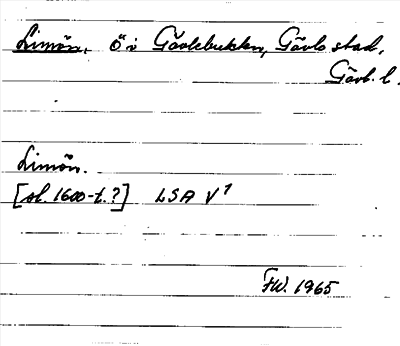 Limön, ö i Gävlebukten, Gävle stad,
Gävl. l.
Limön.
[sl. 1600-t.?] LSA V 1
FW. 1965